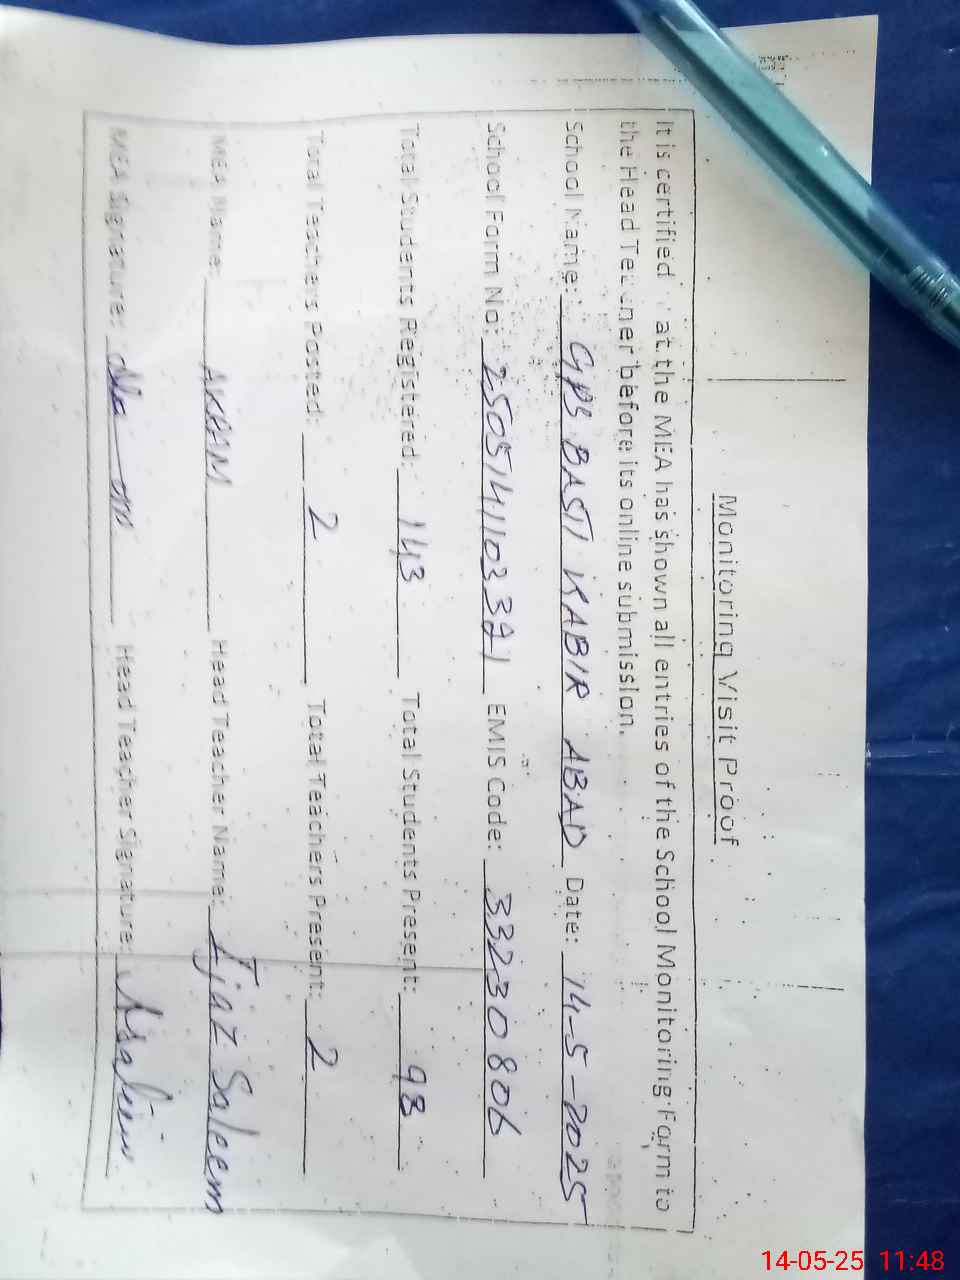 Monitoring Visit Proof
It is certified at the MEA has shown all entries of the School Monitoring Form to
the Head Teacher before its online submission.
School Name: GPS BASTI KABIR ABAD Date: 14-5-2025
School Form No: EMIS Code: 33230806
Total Students Registered: 143 Total Students Present: 98
Total Teachers Posted: 2 Total Teachers Present: 2
MEA Name: AKRAM Head Teacher Name: Ijaz Saleem
MEA Signature: Head Teacher Signature: Asalim
14-05-25 11:48